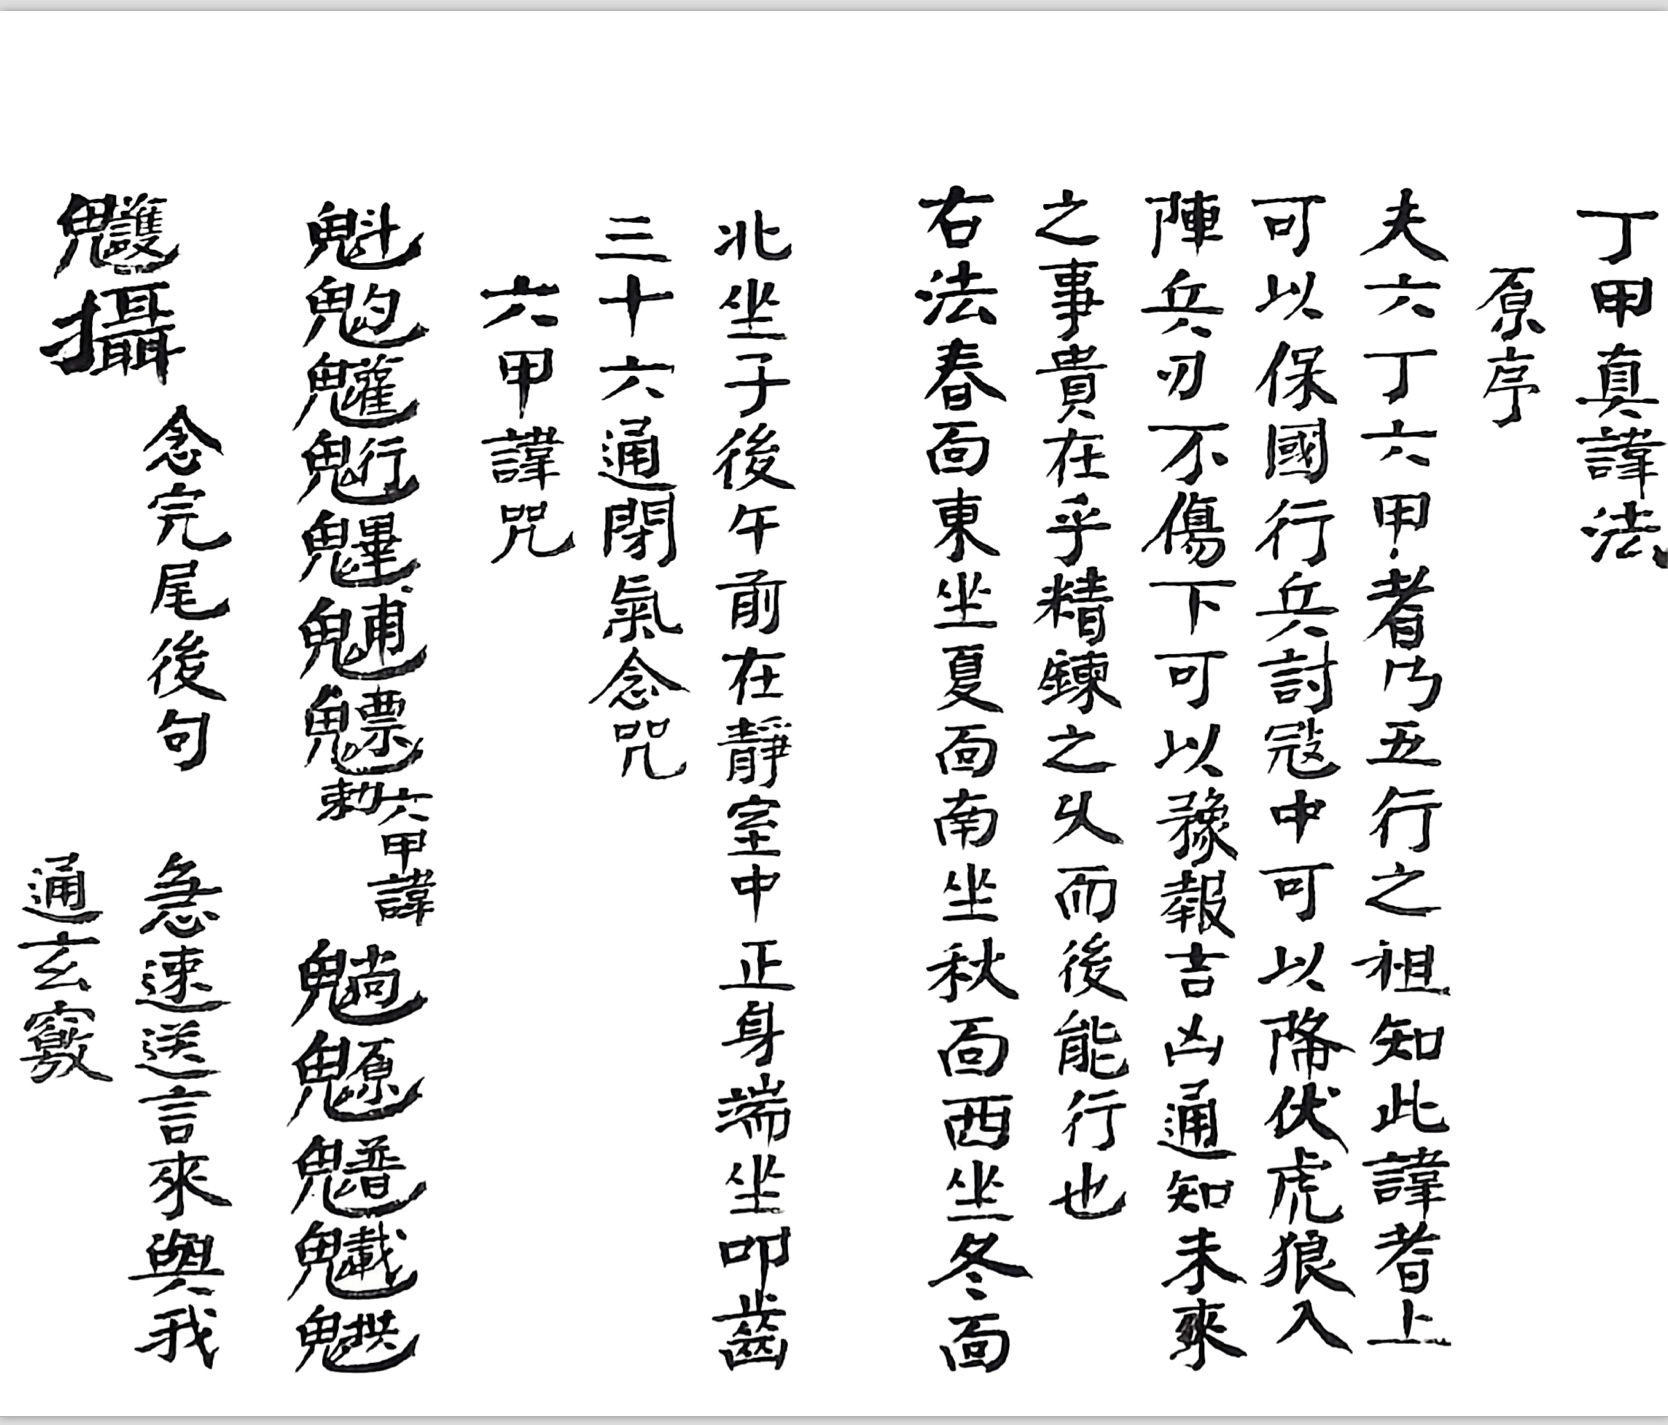 丁甲真諱法
原序
夫六丁六甲者乃五行之祖知此諱者上
可以保國行兵討寇中可以降伏虎狼入
陣兵刃不傷下可以豫報吉凶通知未來
之事貴在乎精鍊之久而後能行也
右法春面東坐夏面南坐秋面西坐冬面
北坐子後午前在靜室中正身端坐叩齒
三十六通閉氣念咒
六甲諱咒
魁魡魒勅六甲諱
攝
念完尾後句
急速送言來與我
通玄竅